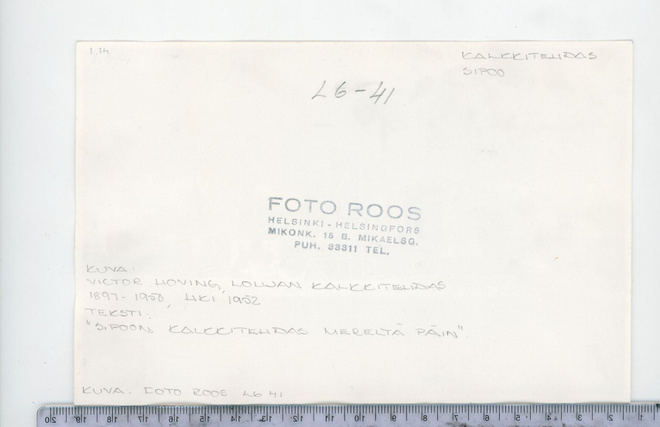 1.14
KALKKITEHDAS
SIPOO
L6-41
FOTO ROOS
HELSINKI - HELSINGFORS
MIKONK. 15 B. MIKAELSG.
PUH. 33311 TEL.
KUVA:
VICTOR HOVING, LOHJAN KALKKITEHDAS
1897-1950, HKI 1952
TEKSTI:
"SIPOON KALKKITEHDAS MERELTÄ PÄIN".
KUVA: FOTO ROOS L6 41
20 19 18 17 16 15 14 13 12 11 10 9 8 7 6 5 4 3 2 1